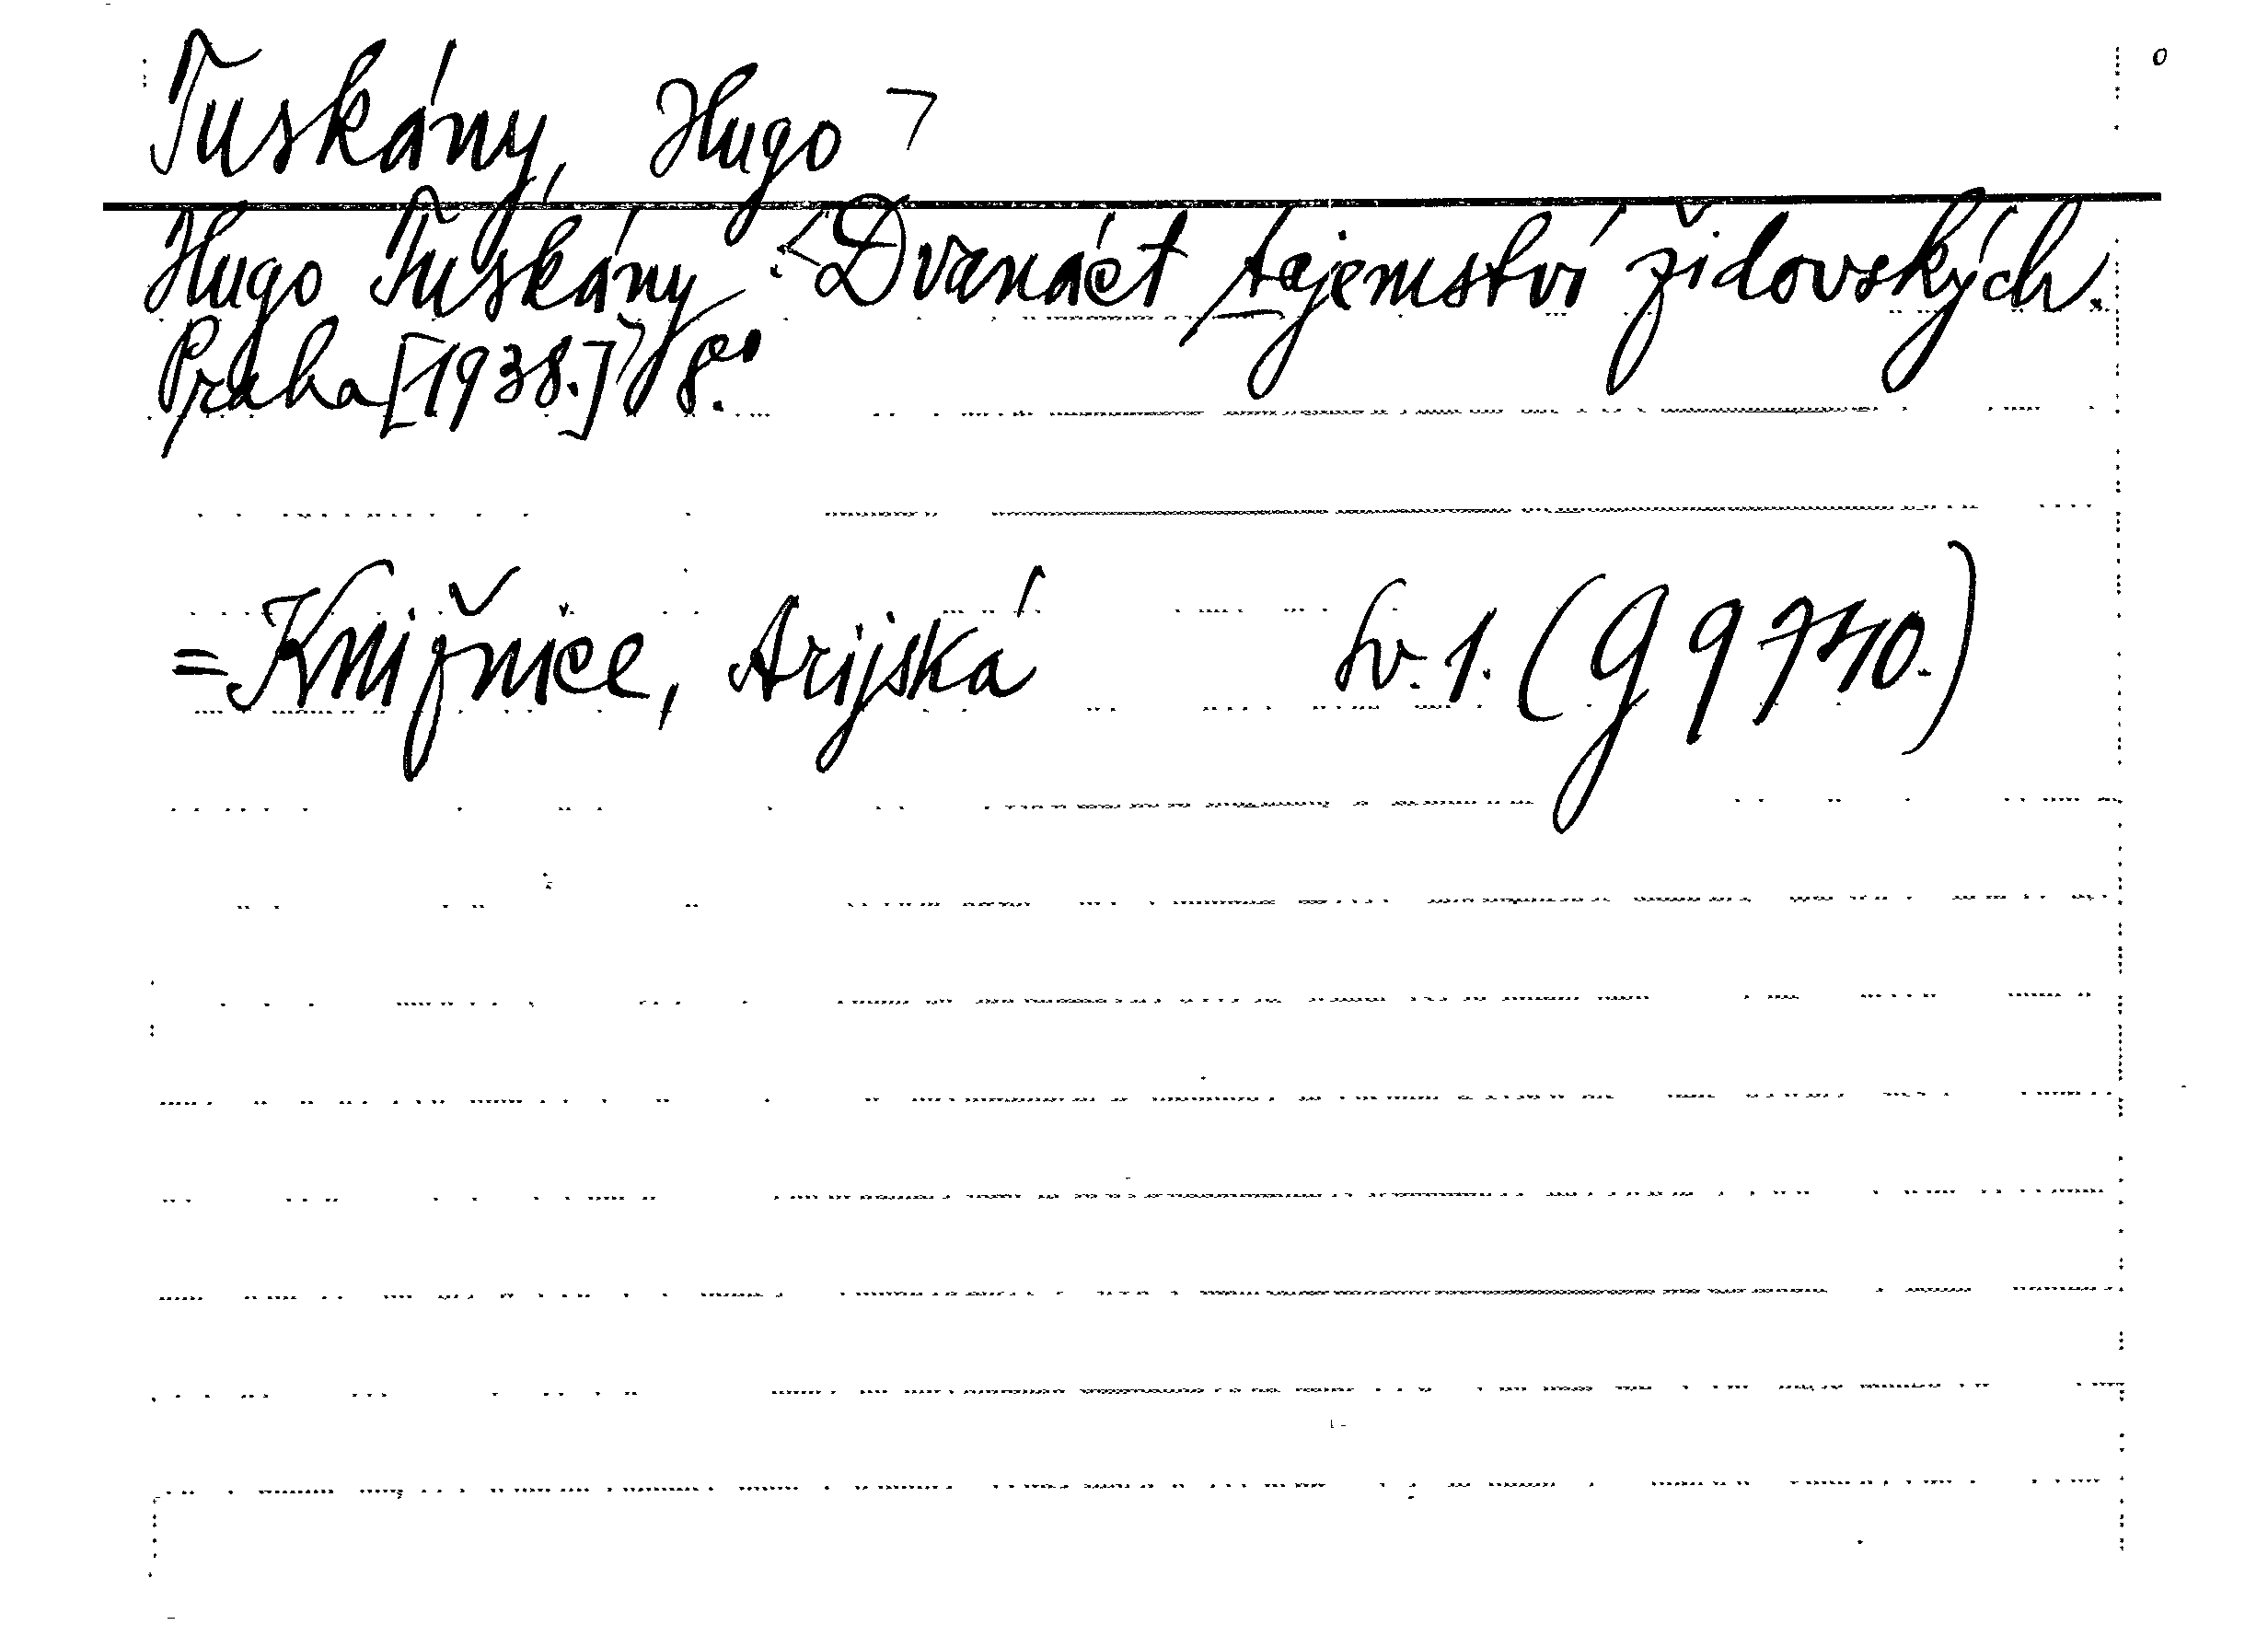 Tuskány, Hugo ⁊
Hugo Tuskány : <Dvanáct tajemství židovských.
Praha [1938.] 8°.
= Knižnice, Arijská Sv. 1. (G 9740.)